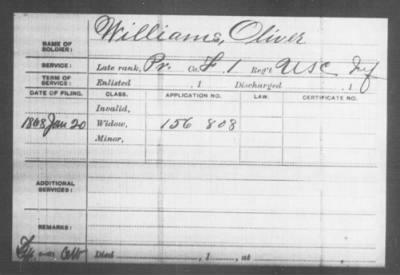 NAME OF SOLDIER: Williams, Oliver
SERVICE: Late rank, Pr. Co. F. 1 Reg't USC Inf
TERM OF SERVICE: Enlisted , 1 Discharged , 1
DATE OF FILING. CLASS. APPLICATION NO. LAW. CERTIFICATE NO.
Invalid,
1868 Jan 20 Widow, 156 808
Minor,
ADDITIONAL SERVICES:
REMARKS:
Died , 1 , at